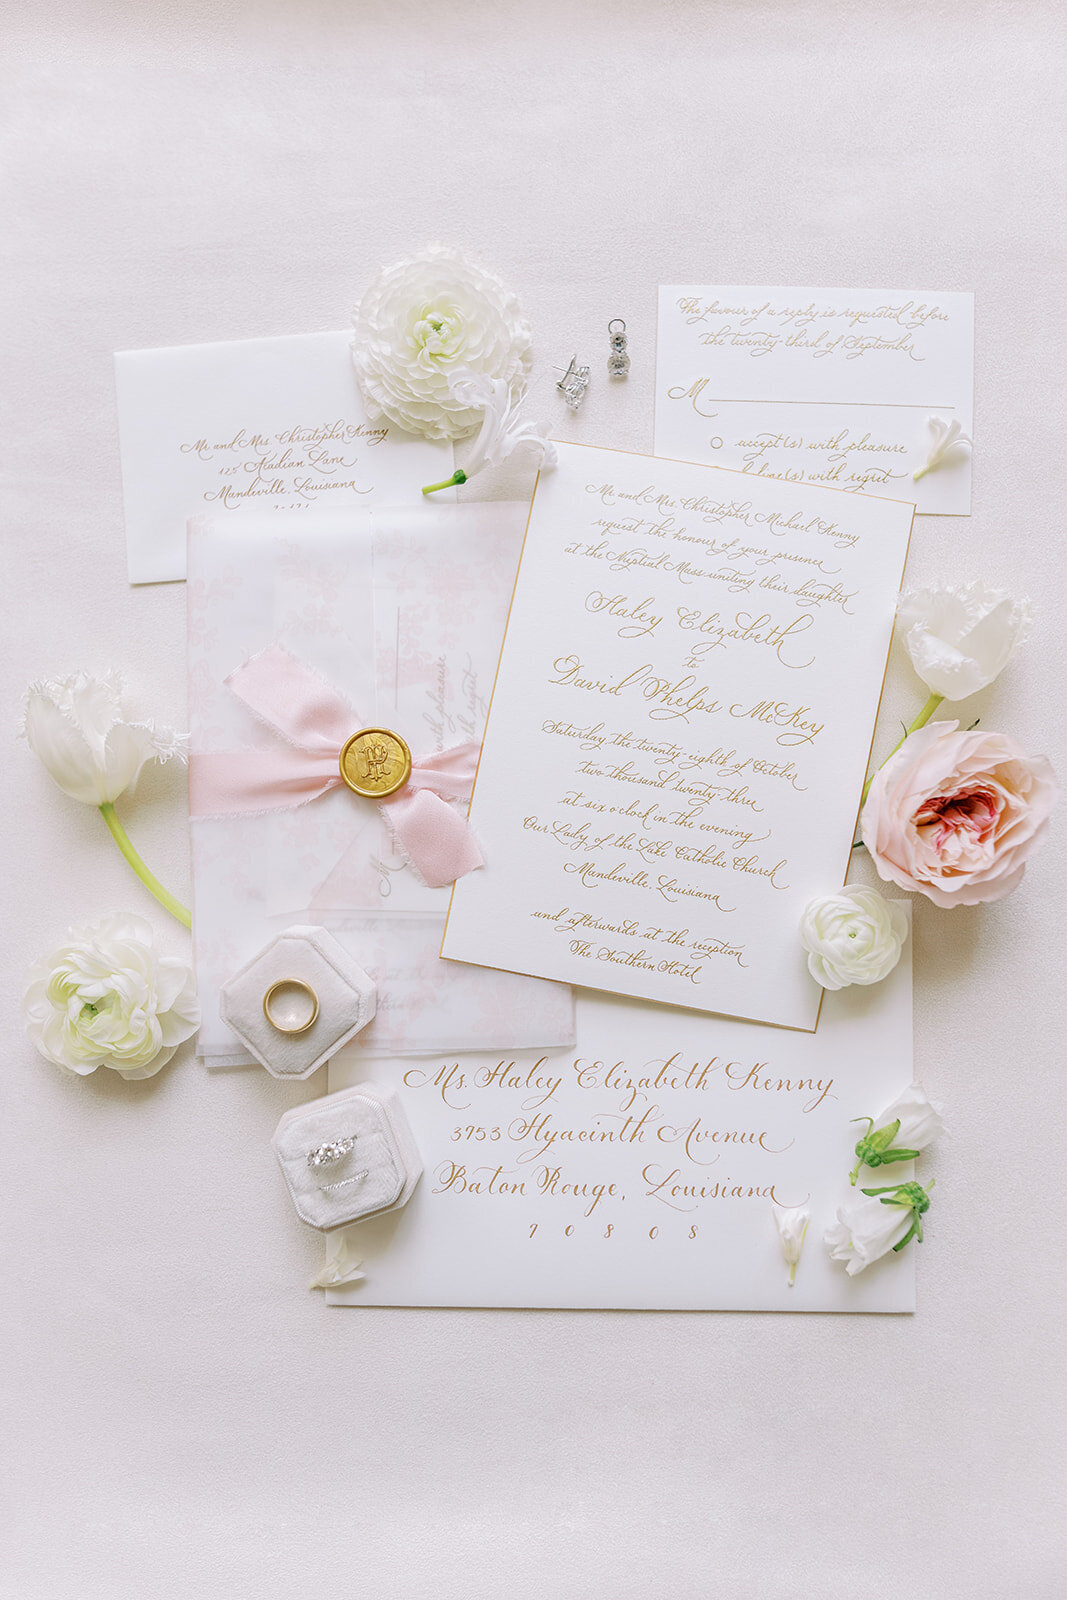 The favour of a reply is requested before
the twenty-third of September
M
accept(s) with pleasure
line(s) with regret
Mr. and Mrs. Christopher Kenny
125 Acadian Lane
Mandeville, Louisiana
Mr. and Mrs. Christopher Michael Kenny
request the honour of your presence
at the Nuptial Mass uniting their daughter
Haley Elizabeth
to
David Phelps McKey
Saturday, the twenty-eighth of October
two thousand twenty-three
at six o'clock in the evening
Our Lady of the Lake Catholic Church
Mandeville, Louisiana
and afterwards at the reception
The Southern Hotel
with pleasure
with regret
M
Ms. Haley Elizabeth Kenny
3953 Hyacinth Avenue
Baton Rouge, Louisiana
70808